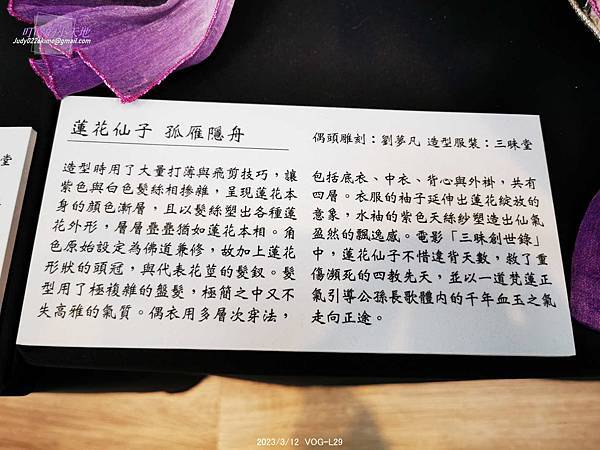 Judy0226kimo@gmail.com
堂
蓮花仙子 孤雁隱舟
偶頭雕刻:劉夢凡 造型服裝:三昧堂
造型時用了大量打薄與飛剪技巧,讓
紫色與白色髮絲相摻雜,呈現蓮花本
身的顏色漸層,且以髮絲塑出各種蓮
花外形,層層疊疊猶如蓮花本相。角
色原始設定為佛道兼修,故加上蓮花
形狀的頭冠,與代表花莖的髮釵。髮
型用了極複雜的盤髮,極簡之中又不
失高雅的氣質。偶衣用多層次穿法,
包括底衣、中衣、背心與外掛,共有
四層。衣服的袖子延伸出蓮花綻放的
意象,水袖的紫色天絲紗塑造出仙氣
盈然的飄逸感。電影「三昧創世錄」
中,蓮花仙子不惜違背天數,救了重
傷瀕死的四教先天,並以一道梵蓮正
氣引導公孫長歌體內的千年血玉之氣
走向正途。
2023/3/12 VOG-L29